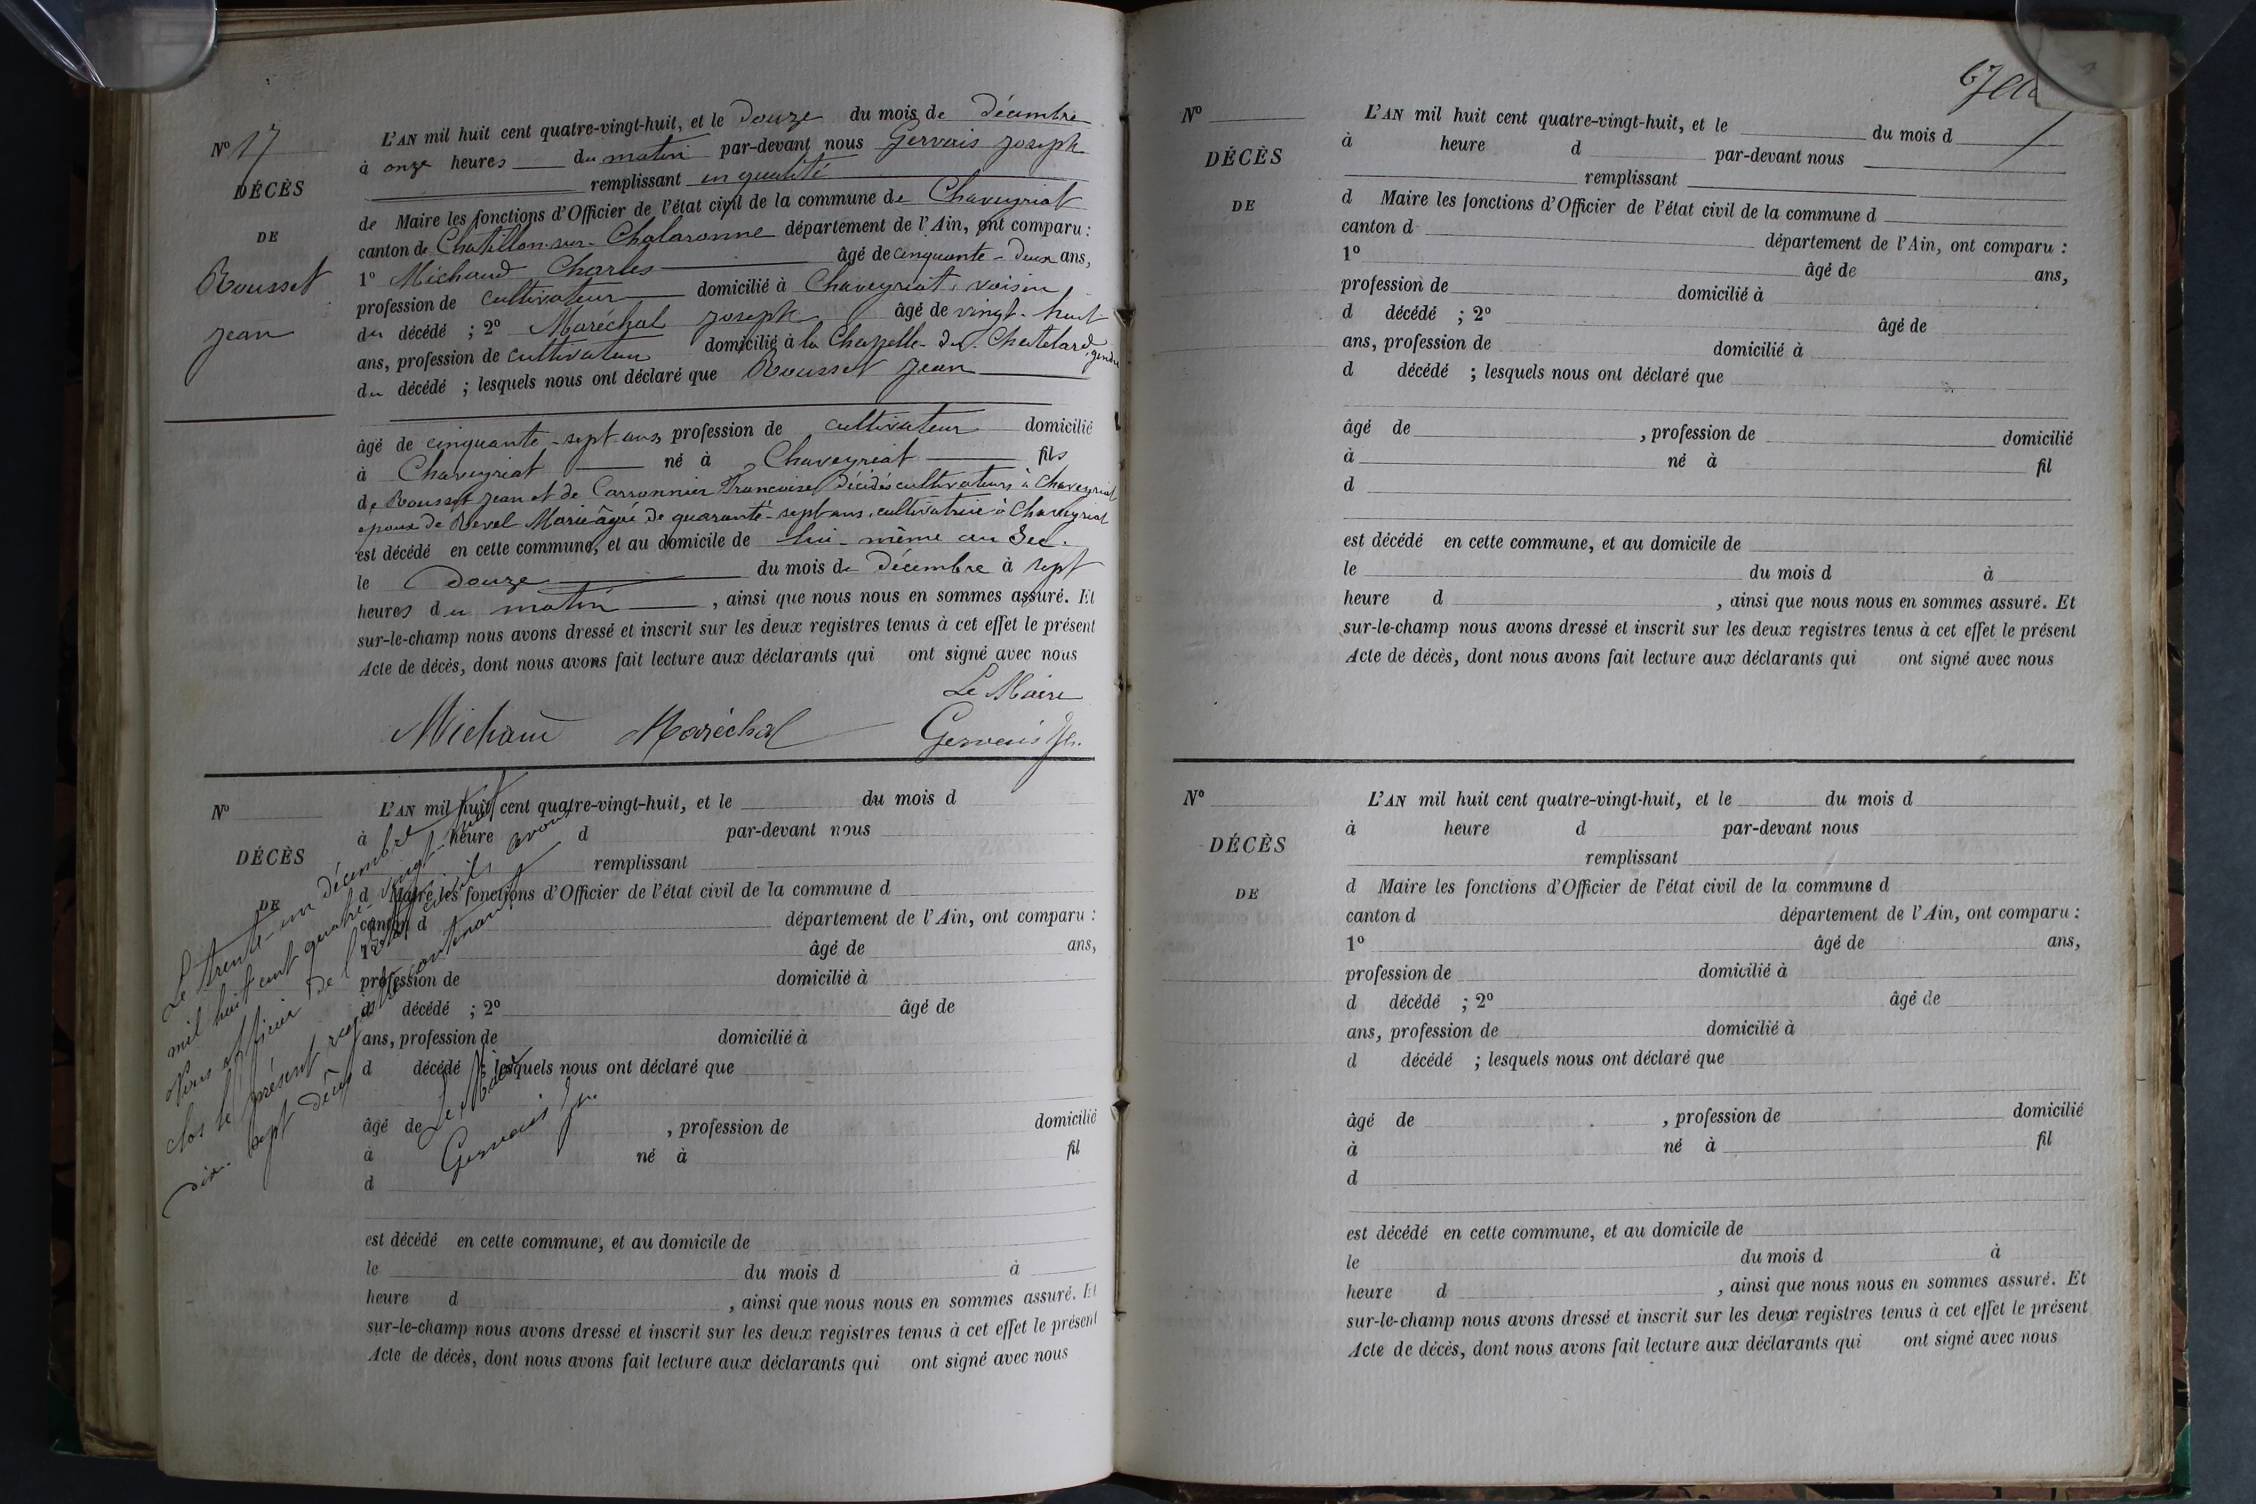 N° 17
DÉCÈS
DE
Rousset
Jean
L'AN mil huit cent quatre-vingt-huit, et le Douze du mois de Décembre
à onze heures du matin par-devant nous Gervais Joseph
remplissant en qualité
de Maire les fonctions d'Officier de l'état civil de la commune de Chaveyriat
canton de Chatillon-sur-Chalaronne département de l'Ain, ont comparu :
1° Michaud Charles âgé de cinquante-deux ans,
profession de cultivateur domicilié à Chaveyriat, voisin
du décédé ; 2° Maréchal Joseph âgé de vingt-huit
ans, profession de cultivateur domicilié à la Chapelle-du-Chatelard, gendre
du décédé ; lesquels nous ont déclaré que Rousset Jean
âgé de cinquante-sept ans, profession de cultivateur domicilié
à Chaveyriat né à Chaveyriat fils
de Rousset Jean et de Carronnier Francoise, décédés cultivateurs à Chaveyriat
époux de Revel Marie âgée de quarante-sept ans, cultivatrice à Chaveyriat
est décédé en cette commune, et au domicile de lui-même au Sec.
le Douze du mois de Décembre à sept
heures du matin, ainsi que nous nous en sommes assuré. Et
sur-le-champ nous avons dressé et inscrit sur les deux registres tenus à cet effet le présent
Acte de décès, dont nous avons fait lecture aux déclarants qui ont signé avec nous
Le Maire
Michaud Maréchal Gervais Jh.
N°
DÉCÈS
DE
L'AN mil huit cent quatre-vingt-huit, et le du mois d
à heure d par-devant nous
remplissant
d Maire les fonctions d'Officier de l'état civil de la commune d
canton d département de l'Ain, ont comparu :
1° âgé de ans,
profession de domicilié à
d décédé ; 2° âgé de
ans, profession de domicilié à
d décédé ; lesquels nous ont déclaré que
âgé de , profession de domicilié
à né à fil
d
est décédé en cette commune, et au domicile de
le du mois d à
heure d , ainsi que nous nous en sommes assuré. Et
sur-le-champ nous avons dressé et inscrit sur les deux registres tenus à cet effet le présent
Acte de décès, dont nous avons fait lecture aux déclarants qui ont signé avec nous
Le trente-un décembre
mil huit cent quatre-vingt-huit
Nous officier de l'état civil avons
clos le présent registre contenant
dix-sept décès
Le Maire
Gervais Jh.
N°
DÉCÈS
DE
L'AN mil huit cent quatre-vingt-huit, et le du mois d
à heure d par-devant nous
remplissant
d Maire les fonctions d'Officier de l'état civil de la commune d
canton d département de l'Ain, ont comparu :
1° âgé de ans,
profession de domicilié à
d décédé ; 2° âgé de
ans, profession de domicilié à
d décédé ; lesquels nous ont déclaré que
âgé de , profession de domicilié
à né à fil
d
est décédé en cette commune, et au domicile de
le du mois d à
heure d , ainsi que nous nous en sommes assuré. Et
sur-le-champ nous avons dressé et inscrit sur les deux registres tenus à cet effet le présent
Acte de décès, dont nous avons fait lecture aux déclarants qui ont signé avec nous
N°
DÉCÈS
DE
L'AN mil huit cent quatre-vingt-huit, et le du mois d
à heure d par-devant nous
remplissant
d Maire les fonctions d'Officier de l'état civil de la commune d
canton d département de l'Ain, ont comparu :
1° âgé de ans,
profession de domicilié à
d décédé ; 2° âgé de
ans, profession de domicilié à
d décédé ; lesquels nous ont déclaré que
âgé de , profession de domicilié
à né à fil
d
est décédé en cette commune, et au domicile de
le du mois d à
heure d , ainsi que nous nous en sommes assuré. Et
sur-le-champ nous avons dressé et inscrit sur les deux registres tenus à cet effet le présent
Acte de décès, dont nous avons fait lecture aux déclarants qui ont signé avec nous